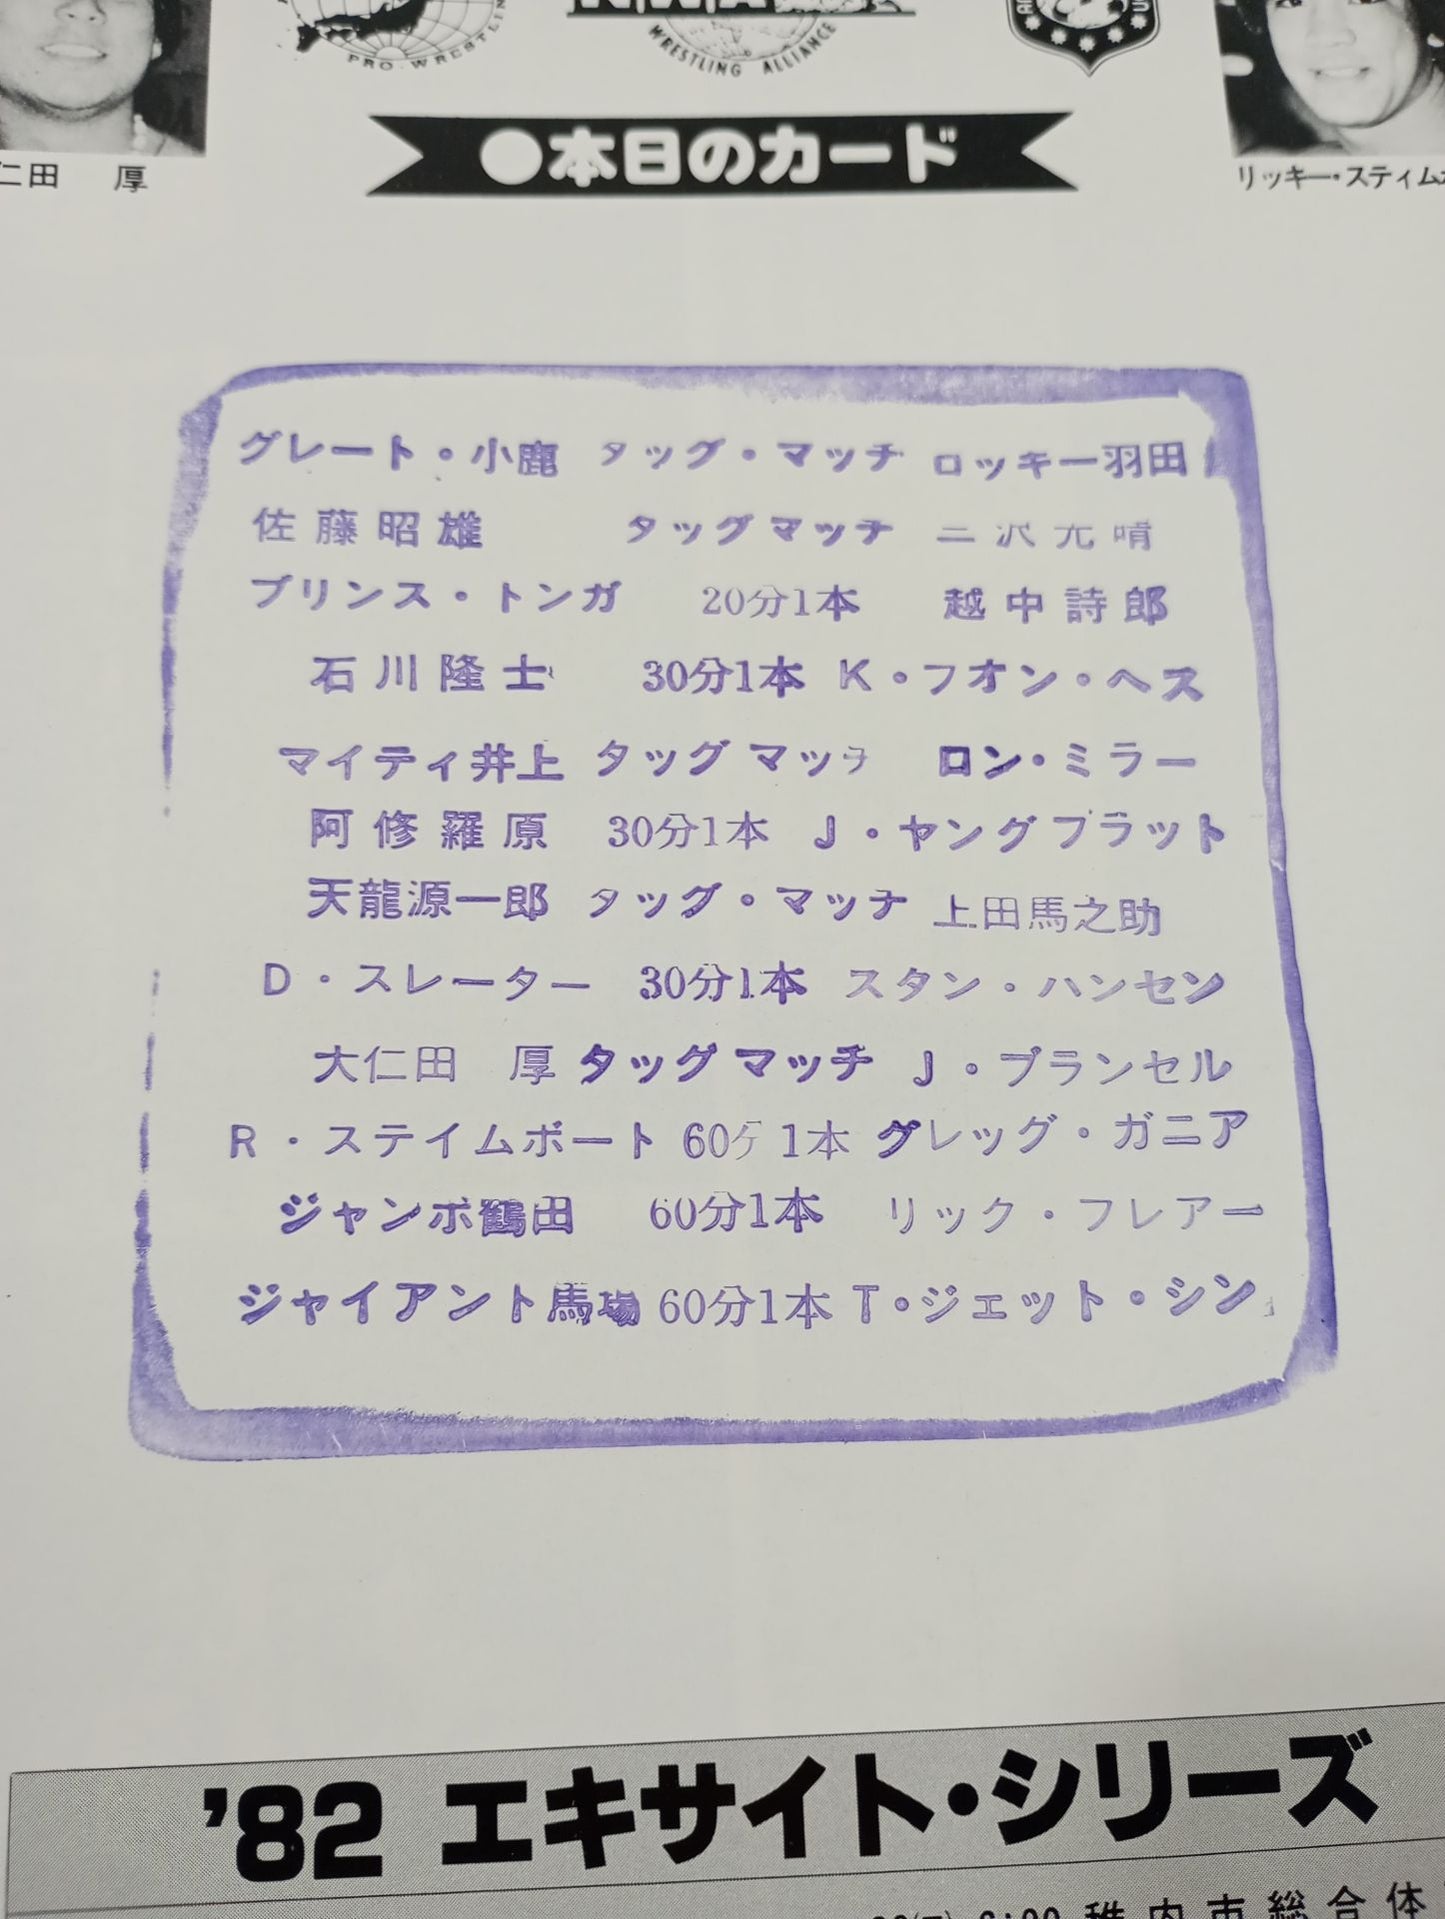 PRO.WRESTLIN
WRESTLING ALLIANCE
仁田 厚
●本日のカード
リッキー・スティム
グレート・小鹿 タッグ・マッチ ロッキー羽田
佐藤昭雄 タッグマッチ 三沢光晴
プリンス・トンガ 20分1本 越中詩郎
石川隆士 30分1本 K・フオン・ヘス
マイティ井上 タッグマッチ ロン・ミラー
阿修羅原 30分1本 J・ヤングブラット
天龍源一郎 タッグ・マッチ 上田馬之助
D・スレーター 30分1本 スタン・ハンセン
大仁田 厚 タッグマッチ J・ブランセル
R・ステイムボート 60分1本 グレッグ・ガニア
ジャンボ鶴田 60分1本 リック・フレアー
ジャイアント馬場 60分1本 T・ジェット・シン
'82 エキサイト・シリーズ
6:00 稚内市総合体